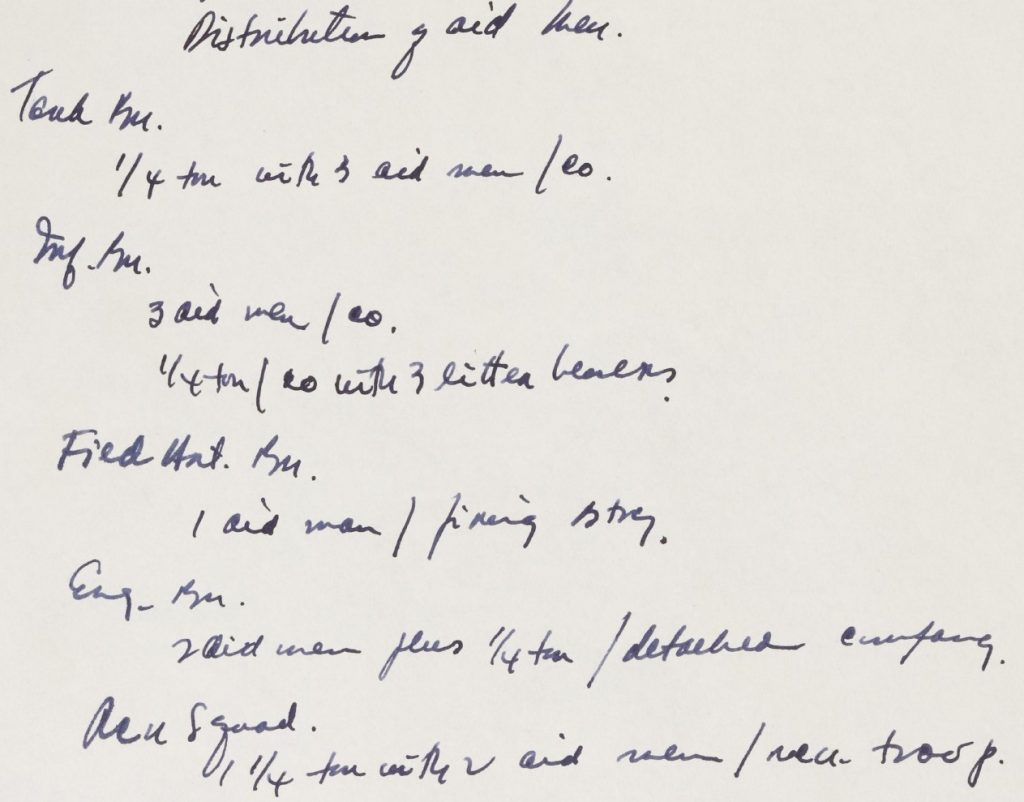 Distribution of aid men.
Tank Bn.
1/4 ton with 3 aid men / co.
Inf. Bn.
3 aid men / co.
1/4 ton / co with 3 litter bearers.
Field Art. Bn.
1 aid man / firing btry.
Eng. Bn.
2 aid men plus 1/4 ton / detached company.
Rcn Squad.
1 1/4 ton with 2 aid men / rcn. troop.